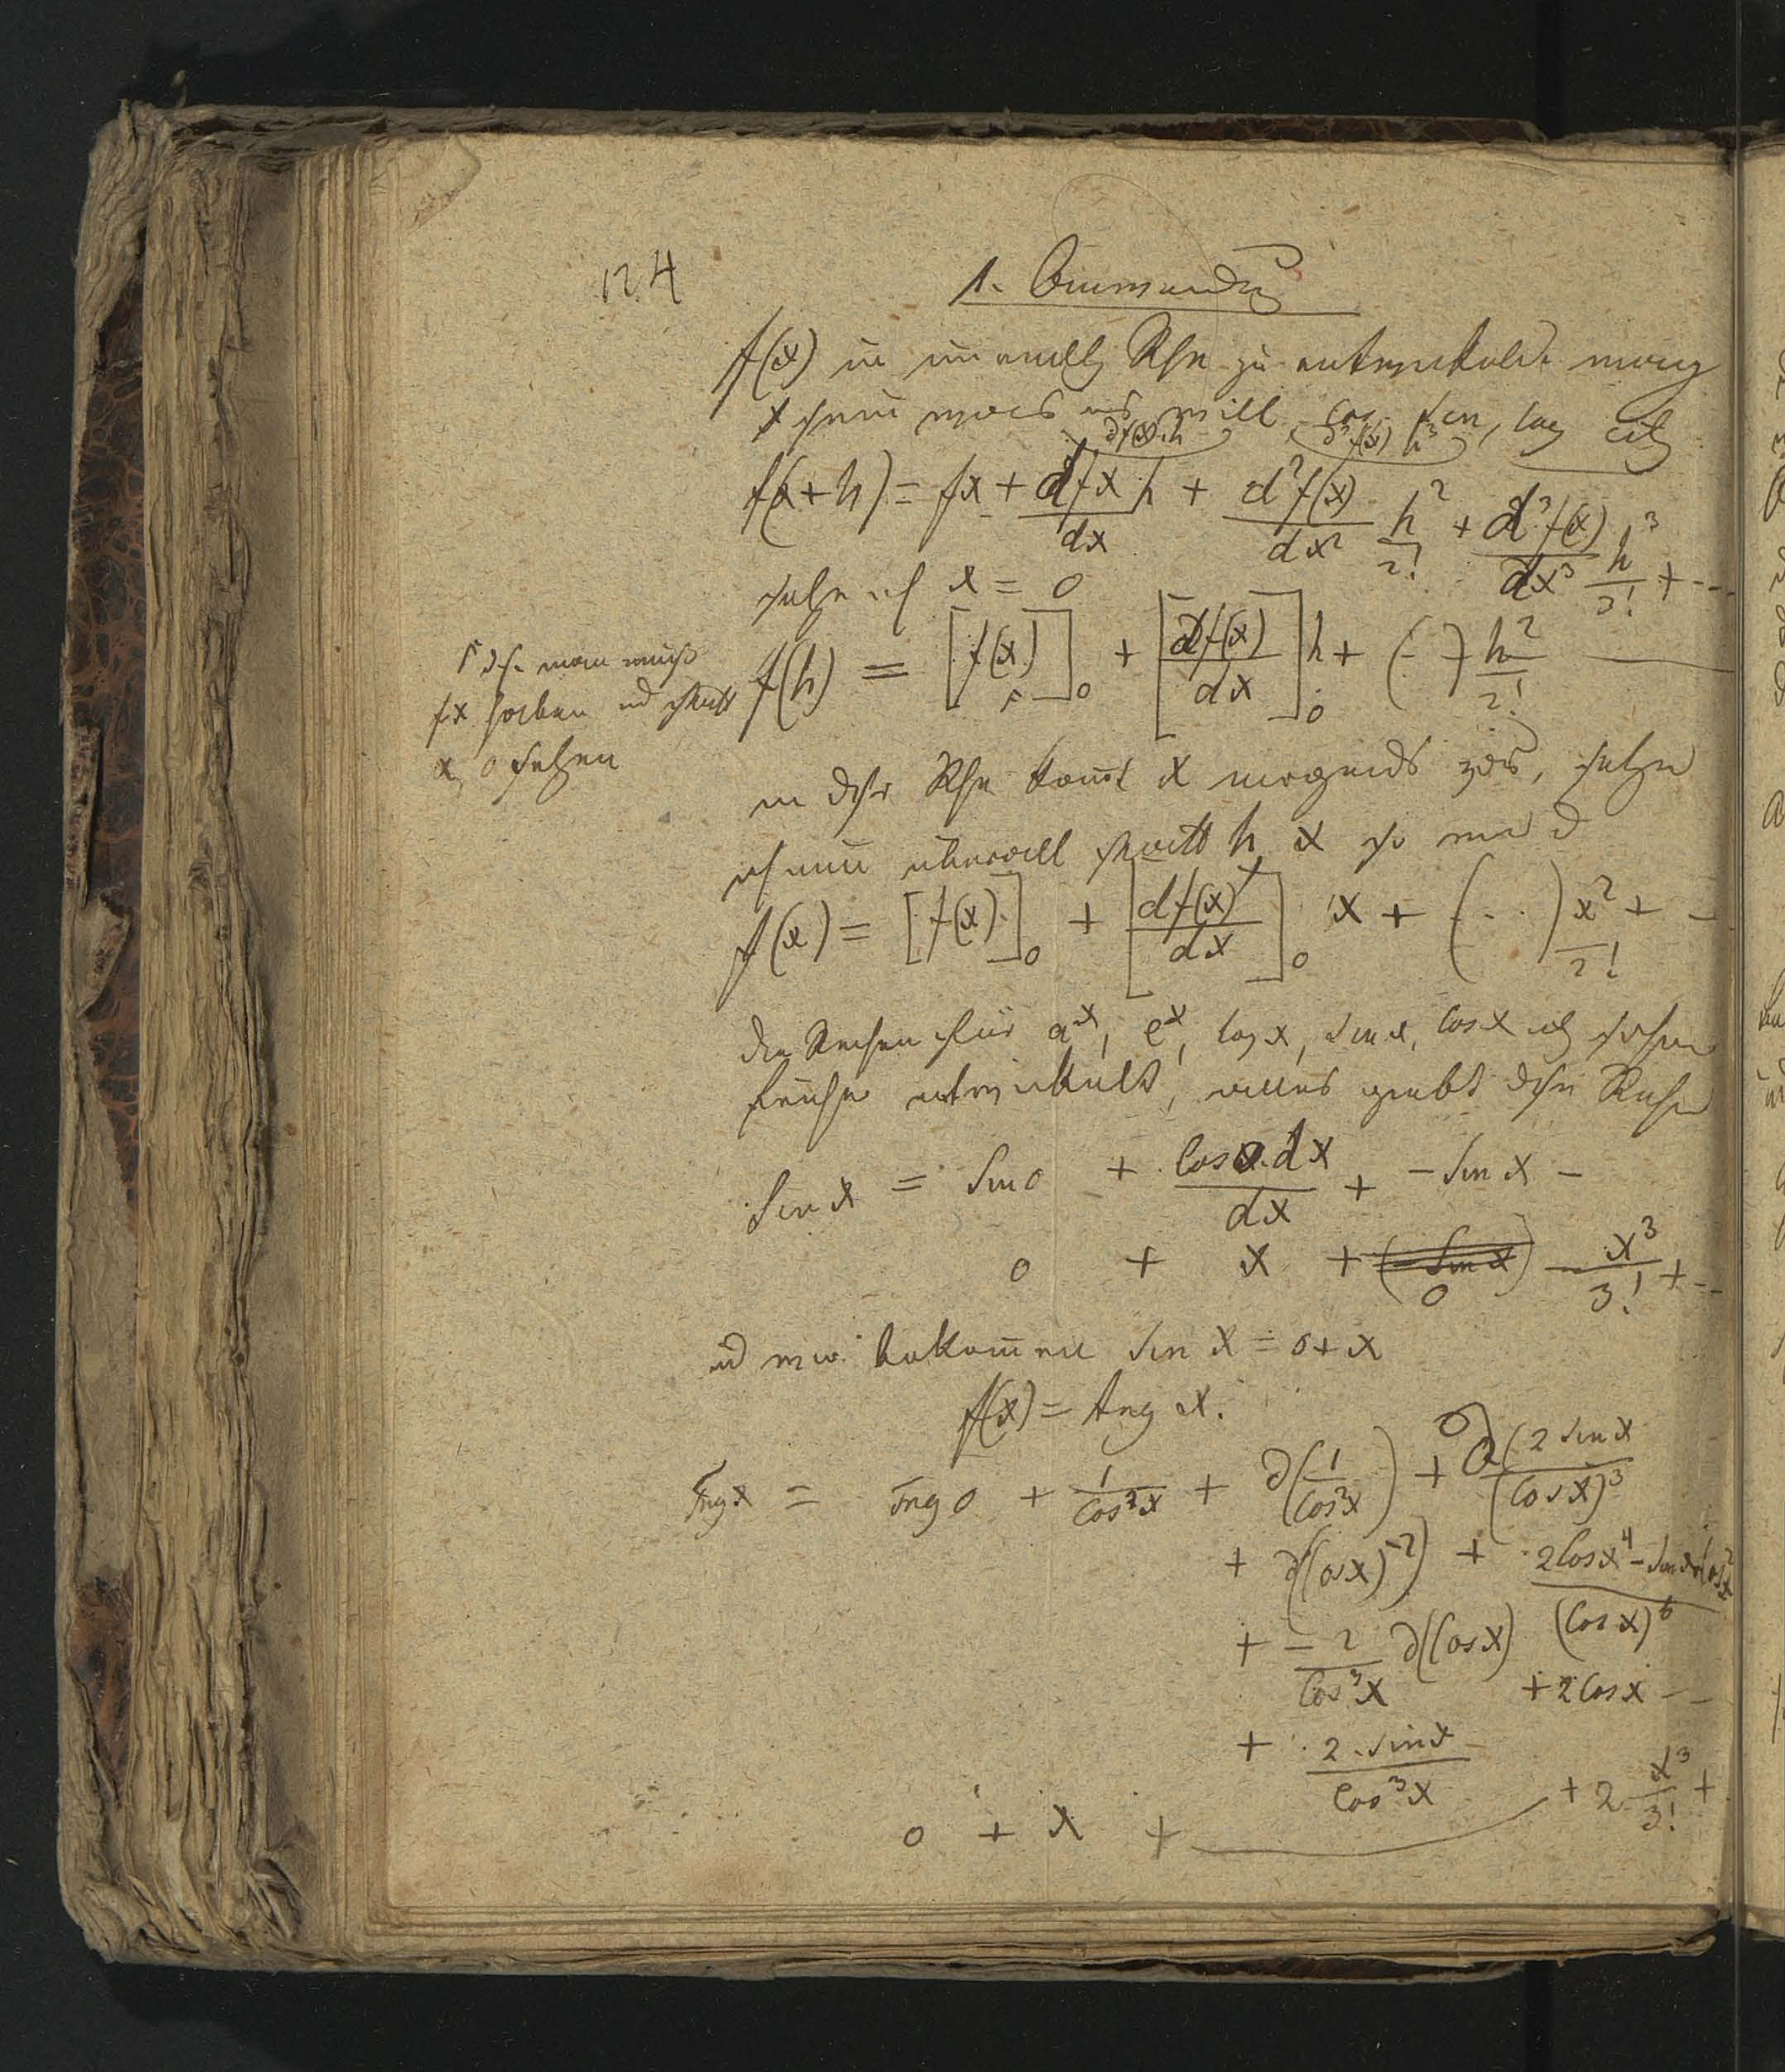 124
1. Anwendung
f(x) in unendl Rhe zu entwickeln mag
x sein was es will cos, sin, log etz
∂f(x).h ∂³f(x) h³
f(x+h) = fx + dfx/dx h + d²f(x)/dx² h²/2! + d³f(x)/dx³ h³/3! + --
setze ich x = 0
f(h) = [f(x)]₀ + [df(x)/dx]₀ h + (- -) h²/2!
man muß
fx haben und statt
x, 0 setzen
in dsr Rhe kom̄t x nirgends vor, setze
ich nun überall statt h x so wird
f(x) = [f(x)]₀ + [df(x)/dx]₀ x + (- . .) x²/2! + -
die Reihen für aˣ, eˣ, log x, sin x, cos x schon
früher entwickelt, alles giebt dse Reihe
Sin x = Sin 0 + Cos x dx/dx + - Sin x -
0 + x + (- Sin x) 0 - x³/3! + --
und wir bekom̄en Sin x = 0 + x
f(x) = tng x.
Tng x = Tng 0 + 1/Cos²x + ∂(1/Cos²x) + ∂(2 Sin x/(Cos x)³
+ ∂(Cos x)⁻²) + 2Cos x⁴ - Sin x Cos x²/(Cos x)⁶
+ -2/Cos³x ∂(Cos x)
+ 2Cos x --
+ 2 . Sin x/Cos³x
0 + x + + 2 x³/3! +